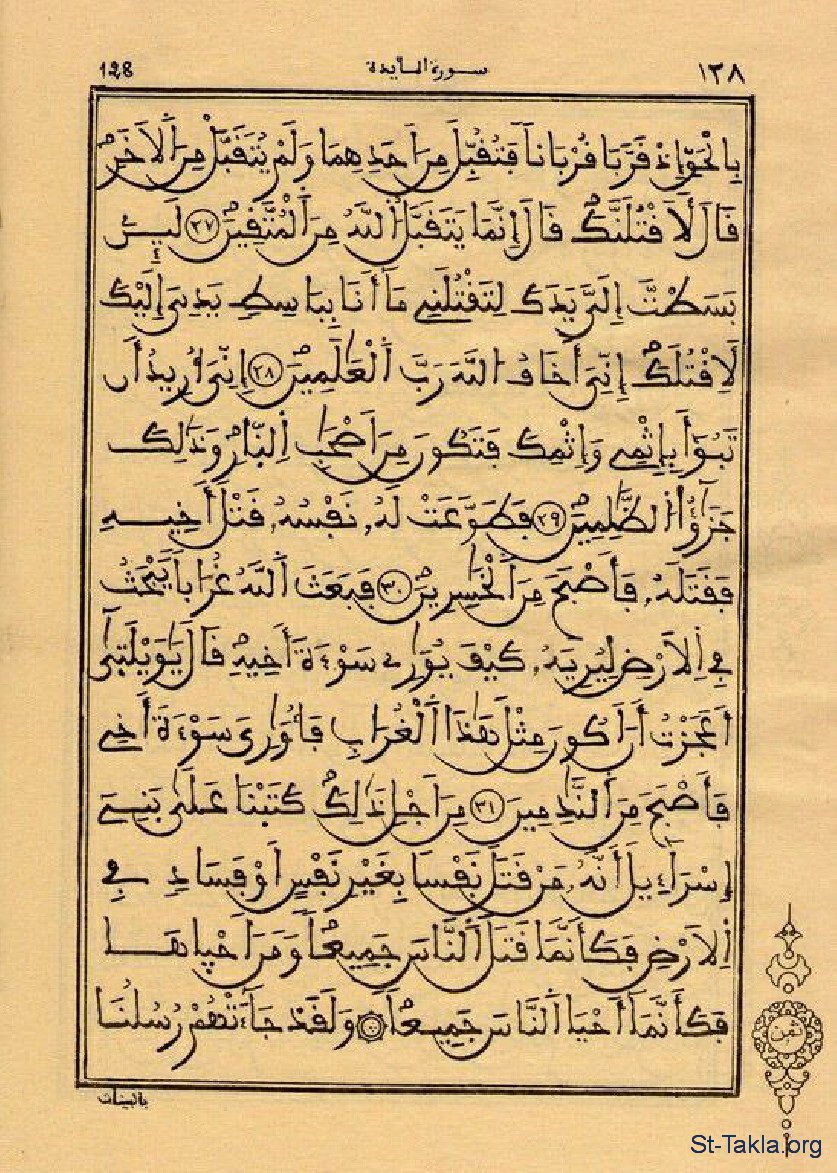 128 سورة المائدة ١٢٨
بِالْحَقِّ إِذْ قَرَّبَا قُرْبَاناً فَتُقُبِّلَ مِنَ اَحَدِهِمَا وَلَمْ يُتَقَبَّلْ مِنَ اَ۬لَاخَرِ
قَالَ لَأَقْتُلَنَّكَ قَالَ إِنَّمَا يَتَقَبَّلُ اُ۬للَّهُ مِنَ اَ۬لْمُتَّقِينَ ٢٧ لَئِنۢ
بَسَطتَّ إِلَيَّ يَدَكَ لِتَقْتُلَنِے مَآ أَنَا بِبَاسِطٖ يَدِيَ إِلَيْكَ
لَأِقْتُلَكَ إِنِّيَ أَخَافُ اُ۬للَّهَ رَبَّ اَ۬لْعَٰلَمِينَ ٢٨ إِنِّيَ أُرِيدُ أَن
تَبُوٓأَ بِإِثْمِے وَإِثْمِكَ فَتَكُونَ مِنَ اَصْحَٰبِ اِ۬لنَّارِ وَذَٰلِكَ
جَزَٰٓؤُاْ اُ۬لظَّٰلِمِينَ ٢٩ فَطَوَّعَتْ لَهُۥ نَفْسُهُۥ قَتْلَ أَخِيهِ
فَقَتَلَهُۥ فَأَصْبَحَ مِنَ اَ۬لْخَٰسِرِينَ ٣٠ فَبَعَثَ اَ۬للَّهُ غُرَاباً يَبْحَثُ
فِے اِ۬لَارْضِ لِيُرِيَهُۥ كَيْفَ يُوَٰرِے سَوْءَةَ أَخِيهِ قَالَ يَٰوَيْلَتَىٰٓ
أَعَجَزْتُ أَنَ اَكُونَ مِثْلَ هَٰذَا اَ۬لْغُرَابِ فَأُوَٰرِيَ سَوْءَةَ أَخِے
فَأَصْبَحَ مِنَ اَ۬لنَّٰدِمِينَ ٣١ مِنَ اَجْلِ ذَٰلِكَ كَتَبْنَا عَلَىٰ بَنِےٓ
إِسْرَآءِيلَ أَنَّهُۥ مَن قَتَلَ نَفْساً بِغَيْرِ نَفْسٍ اَوْ فَسَادٖ فِے
اِ۬لَارْضِ فَكَأَنَّمَا قَتَلَ اَ۬لنَّاسَ جَمِيعاً وَمَنَ اَحْيَاهَا
فَكَأَنَّمَآ أَحْيَا اَ۬لنَّاسَ جَمِيعاً وَلَقَدْ جَآءَتْهُمْ رُسُلُنَا
ثمن
بالبينات
St-Takla.org